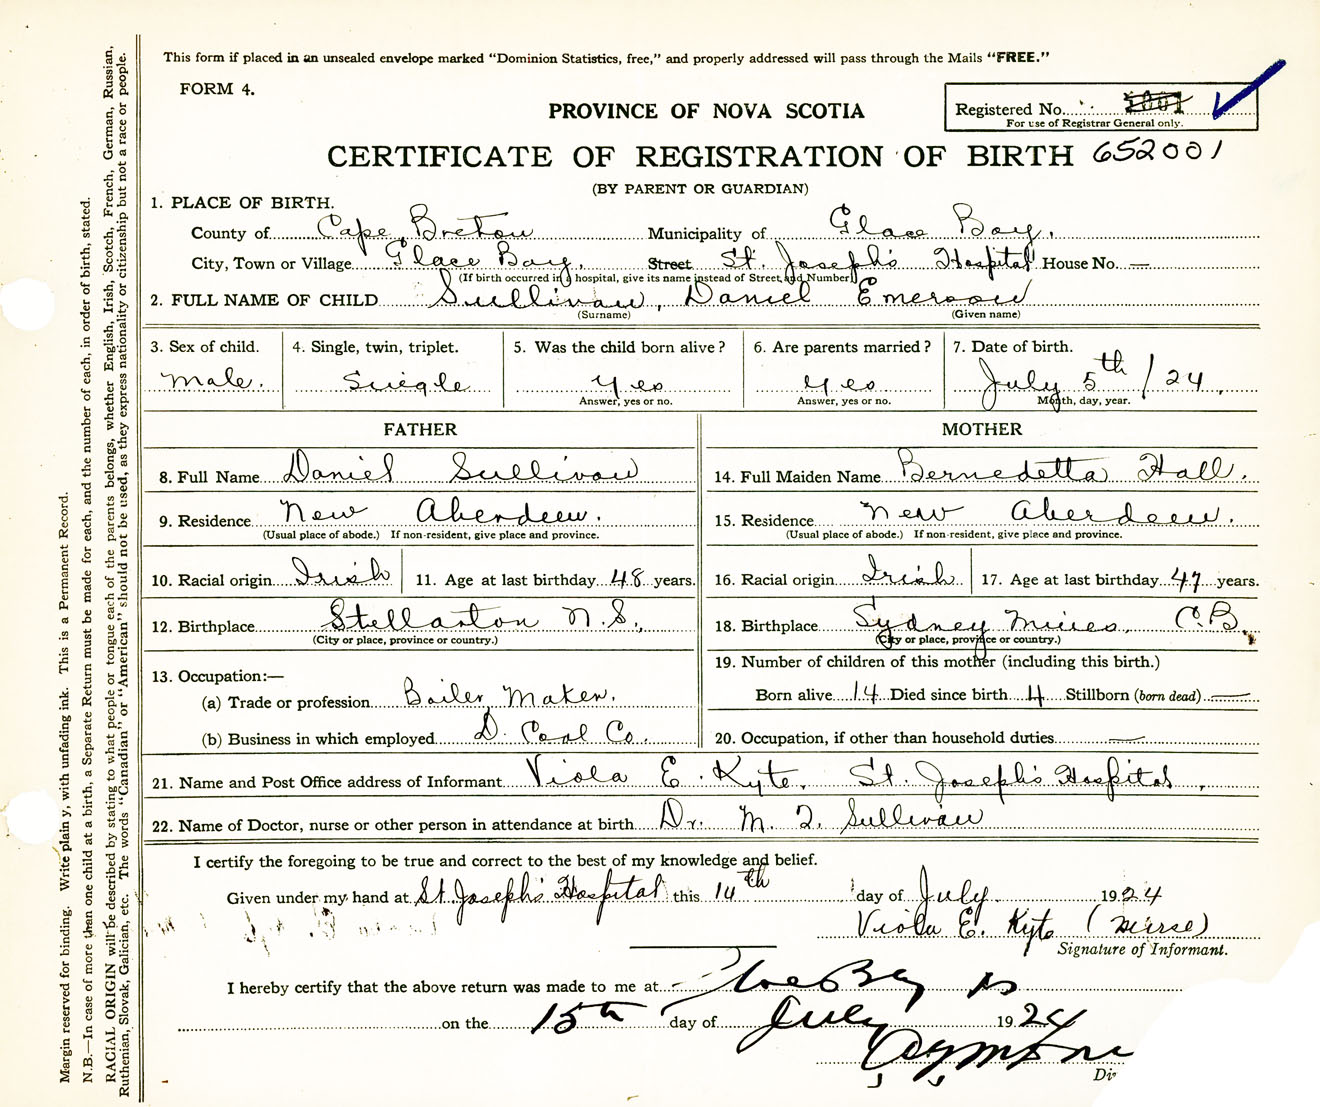 This form if placed in an unsealed envelope marked "Dominion Statistics, free," and properly addressed will pass through the Mails "FREE."
FORM 4.
Registered No.
For use of Registrar General only.
PROVINCE OF NOVA SCOTIA
CERTIFICATE OF REGISTRATION OF BIRTH 652001
(BY PARENT OR GUARDIAN)
1. PLACE OF BIRTH.
County of Cape Breton Municipality of Glace Bay.
City, Town or Village Glace Bay. Street St. Joseph's Hospital House No. —
(If birth occurred in a hospital, give its name instead of Street and Number)
2. FULL NAME OF CHILD Sullivan, Daniel Emerson
(Surname) (Given name)
3. Sex of child. 4. Single, twin, triplet. 5. Was the child born alive? 6. Are parents married? 7. Date of birth.
Male. Single Yes Yes July 5th / 24.
Answer, yes or no. Answer, yes or no. Month, day, year.
FATHER MOTHER
8. Full Name Daniel Sullivan 14. Full Maiden Name Bernedetta Hall.
9. Residence New Aberdeen. 15. Residence New Aberdeen.
(Usual place of abode.) If non-resident, give place and province. (Usual place of abode.) If non-resident, give place and province.
10. Racial origin Irish 11. Age at last birthday 48 years. 16. Racial origin Irish 17. Age at last birthday 47 years.
12. Birthplace Stellarton N.S. 18. Birthplace Sydney Mines. C.B.
(City or place, province or country.) (City or place, province or country.)
13. Occupation:— 19. Number of children of this mother (including this birth.)
(a) Trade or profession Boiler Maker. Born alive 14 Died since birth 4 Stillborn (born dead) —
(b) Business in which employed D. Coal Co. 20. Occupation, if other than household duties —
21. Name and Post Office address of Informant Viola E. Kyte. St. Joseph's Hospital,
22. Name of Doctor, nurse or other person in attendance at birth Dr. M. J. Sullivan
I certify the foregoing to be true and correct to the best of my knowledge and belief.
Given under my hand at St. Joseph's Hospital this 14th day of July 1924
Viola E. Kyte (Nurse)
Signature of Informant.
I hereby certify that the above return was made to me at Glace Bay NS
on the 15th day of July 1924
Margin reserved for binding. Write plain y, with unfading ink. This is a Permanent Record.
N.B.—In case of more than one child at a birth, a Separate Return must be made for each, and the number of each, in order of birth, stated.
RACIAL ORIGIN will be described by stating to what people or tongue each of the parents belongs, whether English, Irish, Scotch, French, German, Russian,
Ruthenian, Slovak, Galician, etc. The words "Canadian" or "American" should not be used, as they express nationality or citizenship but not a race or people.